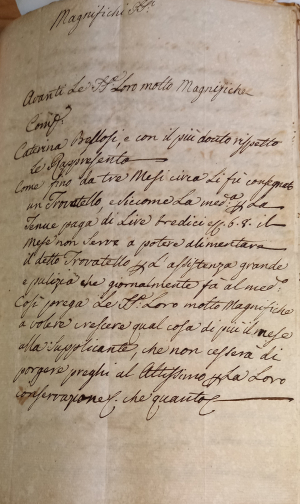 Magnifichi SS.ri
Avanti Le SS.rie Loro molto Magnifiche
Comp.e
Caterina Bellosi, e con il più dovuto rispetto
le Rappresenta
Come fino da tre Mesi circa li fù consegnato
un Trovatello, e siccome La med.a p. La
Tenue paga di Lire tredici 6.8. il
Mese non serve a potere alimentare
il detto Trovatello p. L'assistenza grande
e pulizia che giornalmente fa al med.o
Così prega Le SS. Loro molto Magnifiche
a volere crescere qual cosa di più il mese
alla Supplicante, che non cesserà di
porgere preghi al Altissimo p. La Loro
conservazione, che quanto